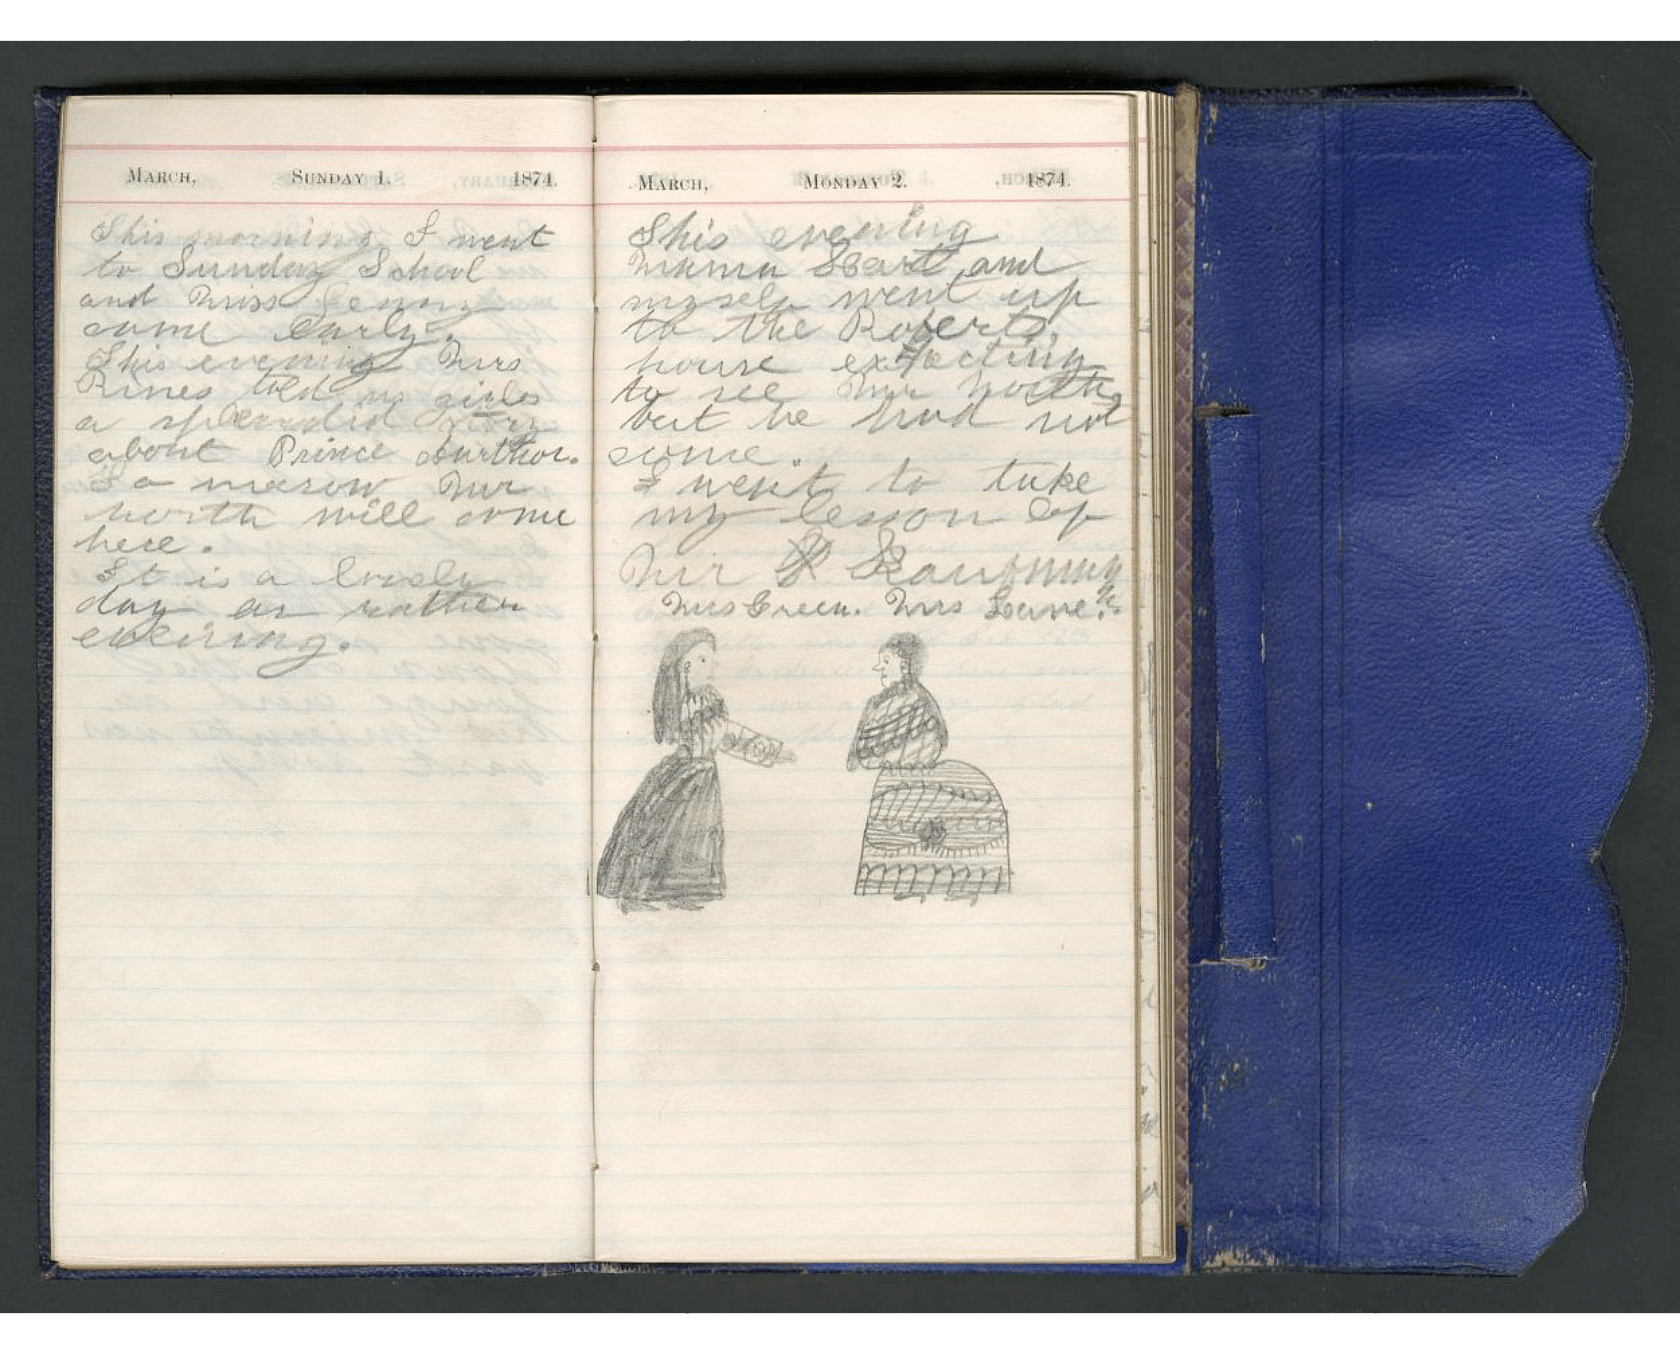 March, Sunday 1. 1874.
This morning I went
to Sunday School
and Miss
came early.
This evening Mrs
Rines told us girls
a splendid story
about Prince Aurthor.
To a morow Mr
North will come
here.
It is a lovely
day or rather
evening.
March, Monday 2. 1874.
This evening
Mama and
myself went up
to the Roberts,
house expecting
to see Mr North,
but he had not
come.
I went to take
my lesson of
Mir
Mrs Green. Mrs